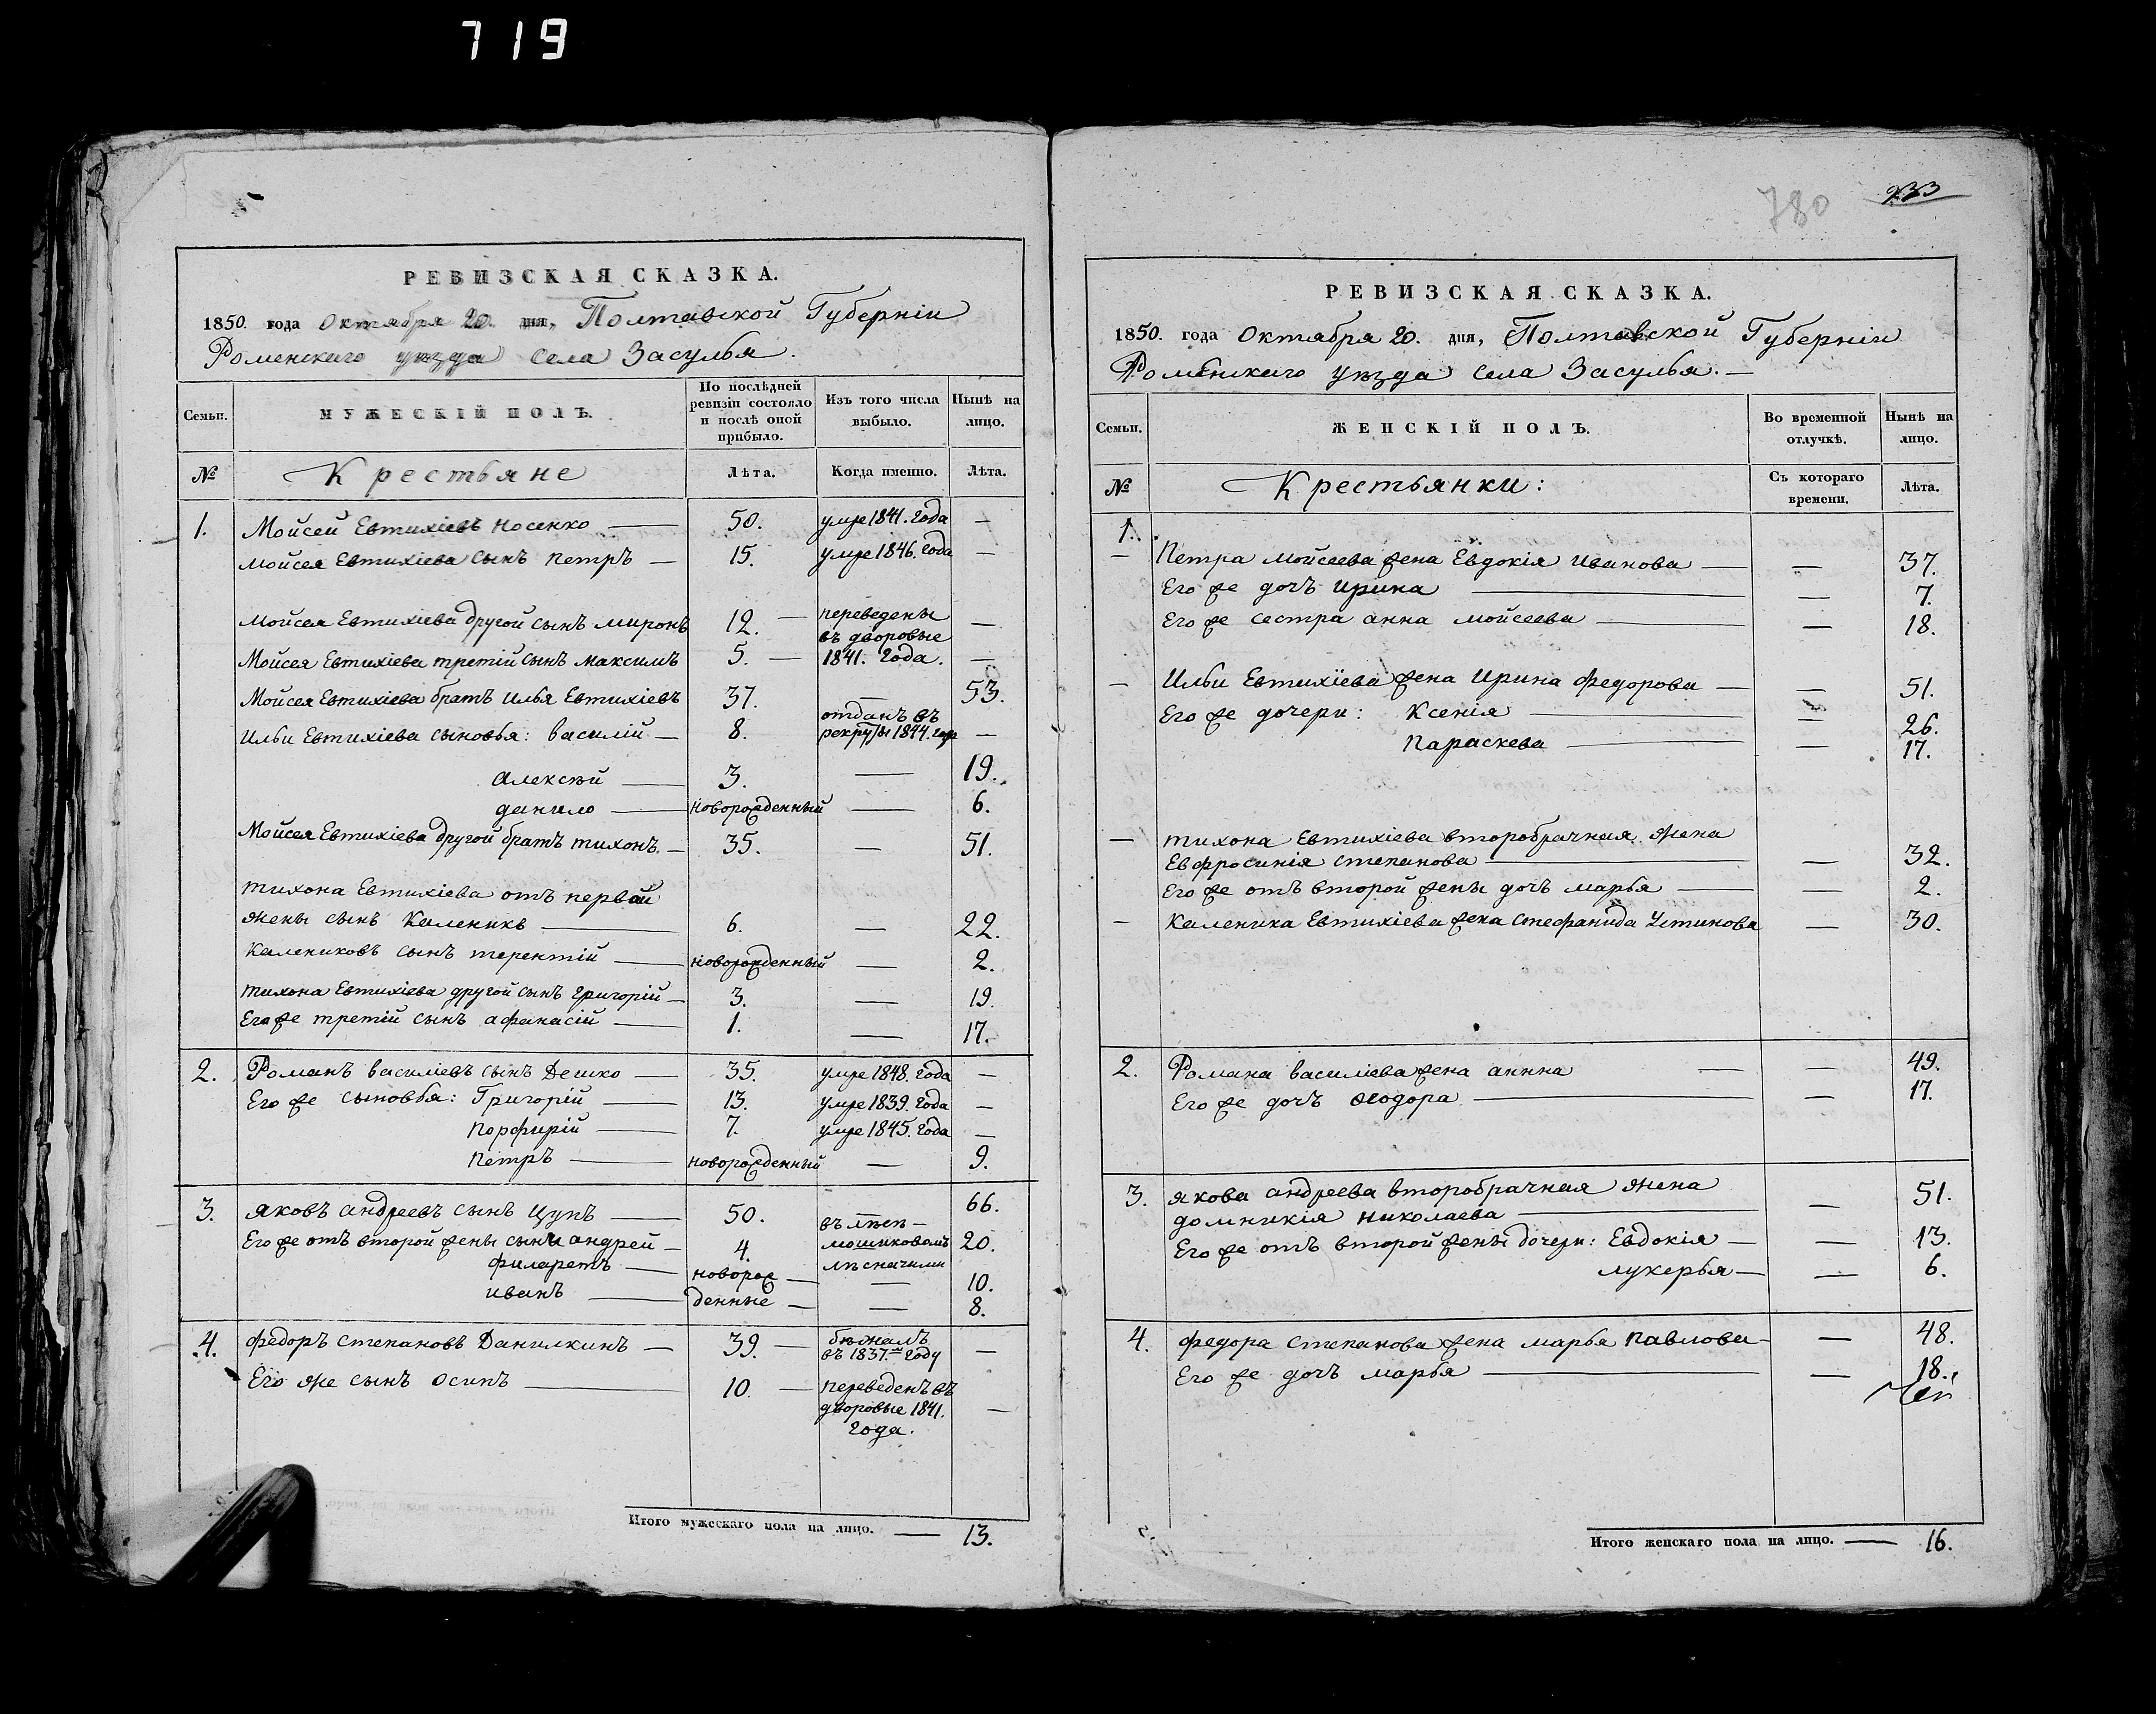 719
РЕВИЗСКАЯ СКАЗКА.
1850. года Октября 20. дня, Полтавской Губерніи
Роменскаго уѣзда села Засулья.
Семьи.
МУЖЕСКІЙ ПОЛЪ.
По послѣдней ревизіи состояло и послѣ оной прибыло.
Изъ того числа выбыло.
Нынѣ на лицо.
№
Крестьяне
Лѣта.
Когда именно.
Лѣта.
1. Мойсей Евтихіевъ Носенко — 50. умре 1841. года —
Мойсея Евтихіева сынъ Петръ — 15. умре 1846. года —
Мойсея Евтихіева другой сынъ Миронъ 12. — переведены въ дворовые —
Мойсея Евтихіева третій сынъ Максимъ 5. — 1841. года. —
Мойсея Евтихіева братъ Илья Евтихіевъ 37. — 53.
Ильи Евтихіева сыновья: Василій — 8. отданъ въ рекруты 1844. года —
Алексѣй — 3. — 19.
Данило — новорожденный — 6.
Мойсея Евтихіева другой братъ Тихонъ. — 35. — 51.
Тихона Евтихіева отъ первой
жены сынъ Каленикъ — 6. — 22.
Калениковъ сынъ Терентій — новорожденный — 2.
Тихона Евтихіева другой сынъ Григорій — 3. — 19.
Его же третій сынъ Афанасій — 1. — 17.
2. Романъ Василіевъ сынъ Дешко — 35. умре 1848. года —
Его же сыновья: Григорій — 13. умре 1839. года —
Порфирій — 7. умре 1845. года —
Петръ — новорожденный — 9.
3. Яковъ Андреевъ сынъ Цупъ — 50. 66.
Его же отъ второй жены сыны Андрей — 4. 20.
Филаретъ — новорож — — 10.
Иванъ — денные — — 8.
4. Федоръ Степановъ Данилкинъ — 39. — бѣжалъ въ 1837.м году —
Его же сынъ Осипъ — 10. — переведенъ въ дворовые 1841. года. —
Итого мужескаго пола на лицо. — 13.
780
233
РЕВИЗСКАЯ СКАЗКА.
1850. года Октября 20. дня, Полтавской Губерніи
Роменскаго уѣзда села Засулья. —
Семьи.
ЖЕНСКІЙ ПОЛЪ.
Во временной отлучкѣ.
Нынѣ на лицо.
№
Крестьянки:
Съ котораго времени.
Лѣта.
1.
— Петра Мойсеева жена Евдокія Иванова — — 37.
Его же дочъ Ирина — — 7.
Его же сестра Анна Мойсеева — — 18.
— Ильи Евтихіева жена Ирина Федорова — — 51.
Его же дочери: Ксенія — — 26.
Параскева — — 17.
— Тихона Евтихіева второбрачная жена
Евфросинія Степанова — — 32.
Его же отъ второй жены дочъ Марья — — 2.
— Каленика Евтихіева жена Стефанида Устинова — 30.
2. Романа Василіева жена Аннна — — 49.
Его же дочъ Ѳеодора — — 17.
3. Якова Андреева второбрачная жена
Домникія Николаева — — 51.
Его же отъ второй жены дочери: Евдокія — — 13.
Лукерья — — 6.
4. Федора Степанова жена Марья Павлова — — 48.
Его же дочъ Марья — — 18.
Итого женскаго пола на лицо. — 16.